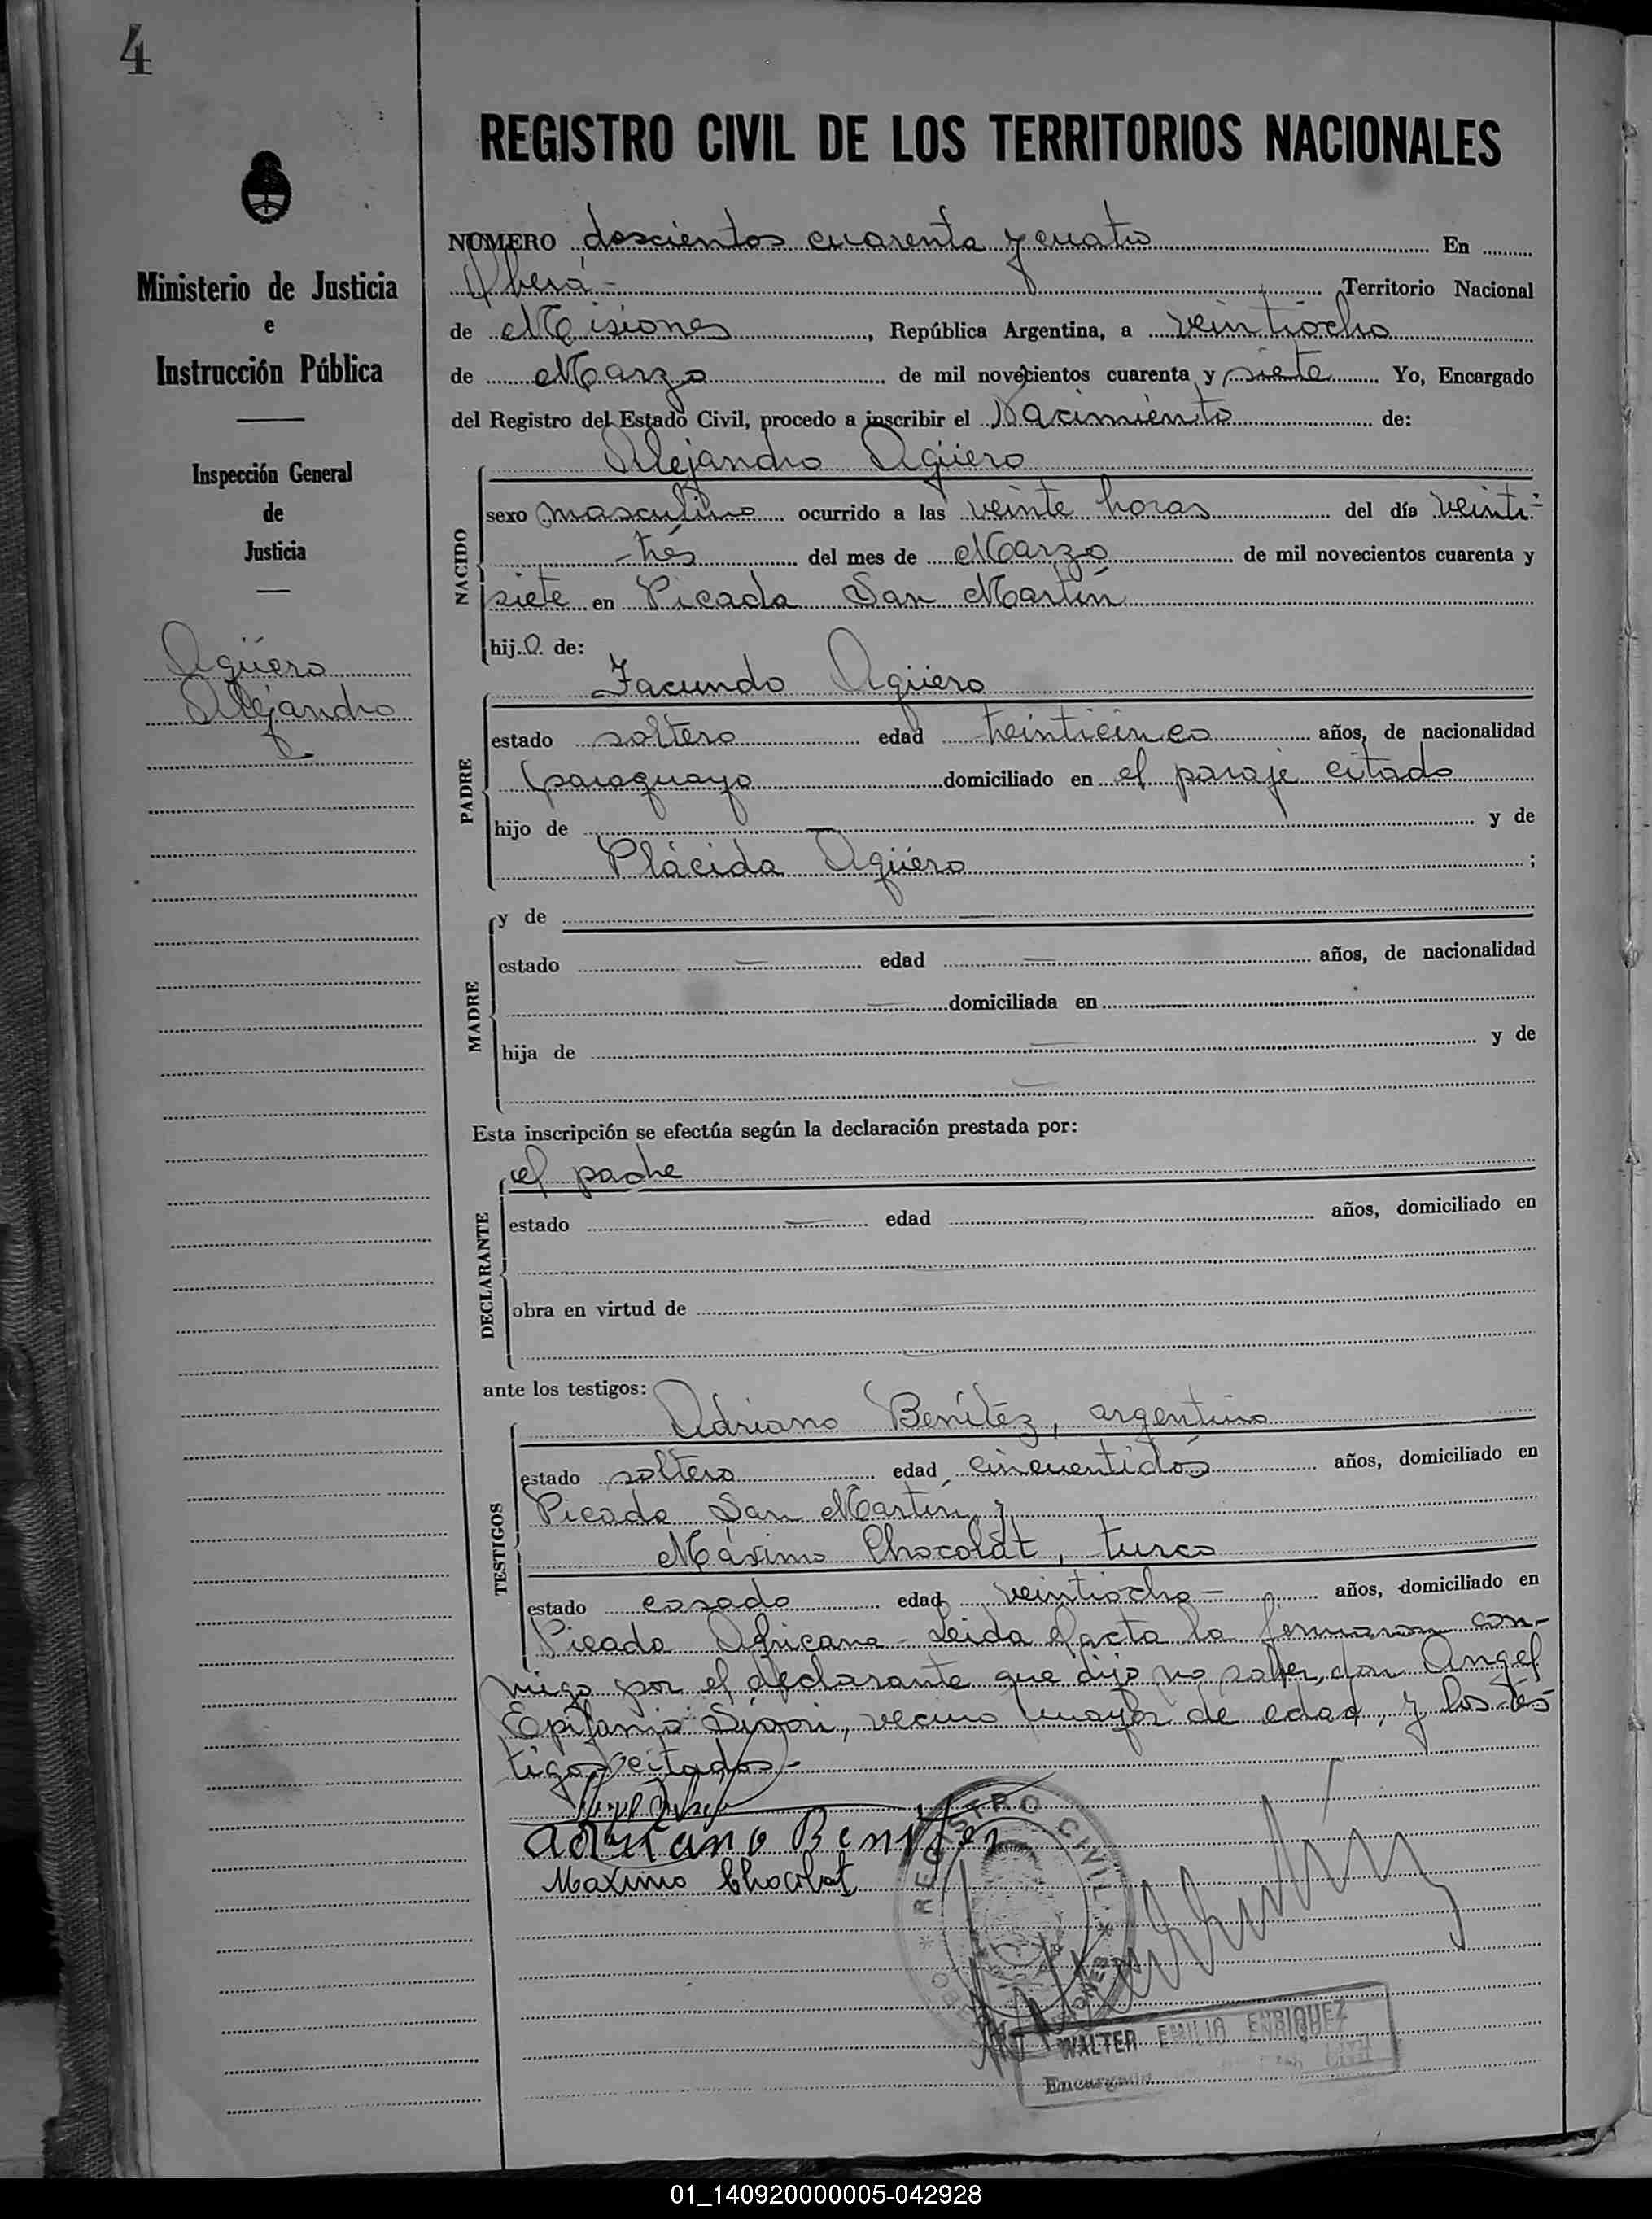 4
Ministerio de Justicia
e
Instrucción Pública
Inspección General
de
Justicia
Agüero
Alejandro
REGISTRO CIVIL DE LOS TERRITORIOS NACIONALES
NÚMERO doscientos cuarenta y cuatro En
Oberá - Territorio Nacional
de Misiones, República Argentina, a veintiocho
de Marzo de mil novecientos cuarenta y siete Yo, Encargado
del Registro del Estado Civil, procedo a inscribir el Nacimiento de:
Alejandro Agüero
NACIDO
sexo masculino ocurrido a las veinte horas del día veinti-
-trés del mes de Marzo de mil novecientos cuarenta y
siete en Picada San Martín
hij o de:
Facundo Agüero
PADRE
estado soltero edad treinticinco años, de nacionalidad
paraguaya domiciliado en el paraje citado
hijo de — y de
Plácida Agüero ;
MADRE
y de —
estado — edad — años, de nacionalidad
— domiciliada en
hija de — y de
—
Esta inscripción se efectúa según la declaración prestada por:
el padre
DECLARANTE
estado — edad — años, domiciliado en
—
obra en virtud de —
—
ante los testigos:
Adriano Benítez, argentino
TESTIGOS
estado soltero edad cincuentidós años, domiciliado en
Picada San Martín y
Máximo Chocolat, turco
estado casado edad veintiocho - años, domiciliado en
Picada Africana - Leida el acta la firmaron con-
migo por el declarante que dijo no saber, don Angel
Epifanio, vecino mayor de edad, y los tes
tigos citados -
adriano Benitez
Maximo Chocolat
REGISTRO CIVIL
WALTER EMILIO ENRIQUEZ
Encargado
01_140920000005-042928